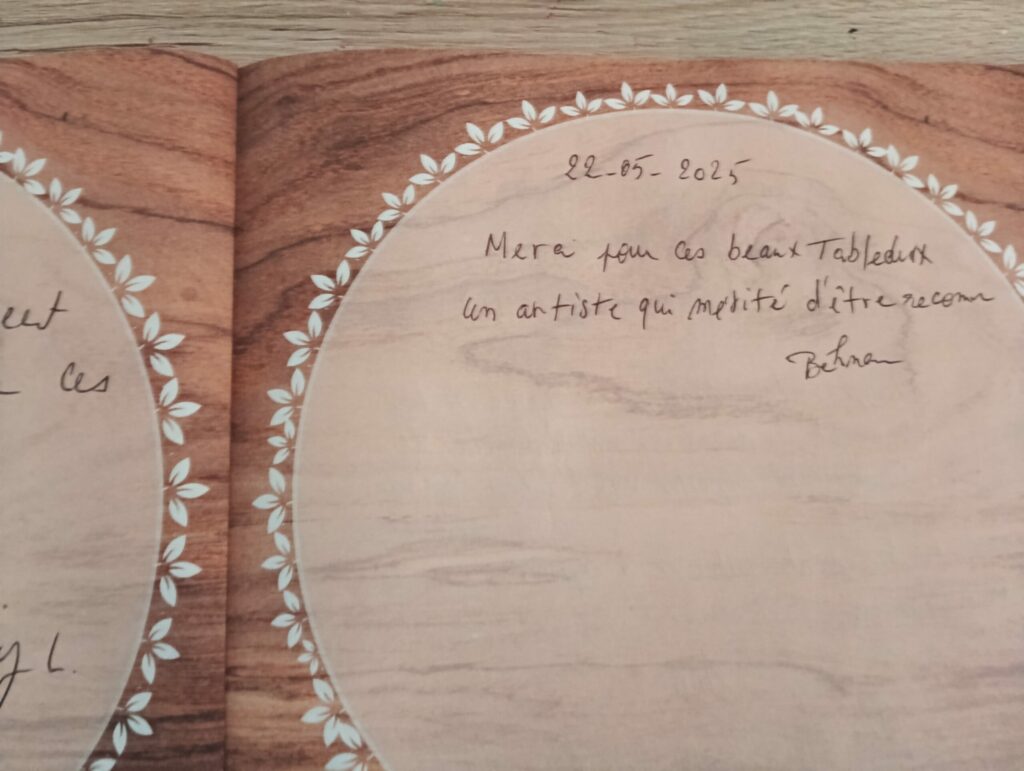 ces
y L.
22-05-2025
Merci pour ces beaux Tableaux
un artiste qui mérité d'être reconnu
Behman